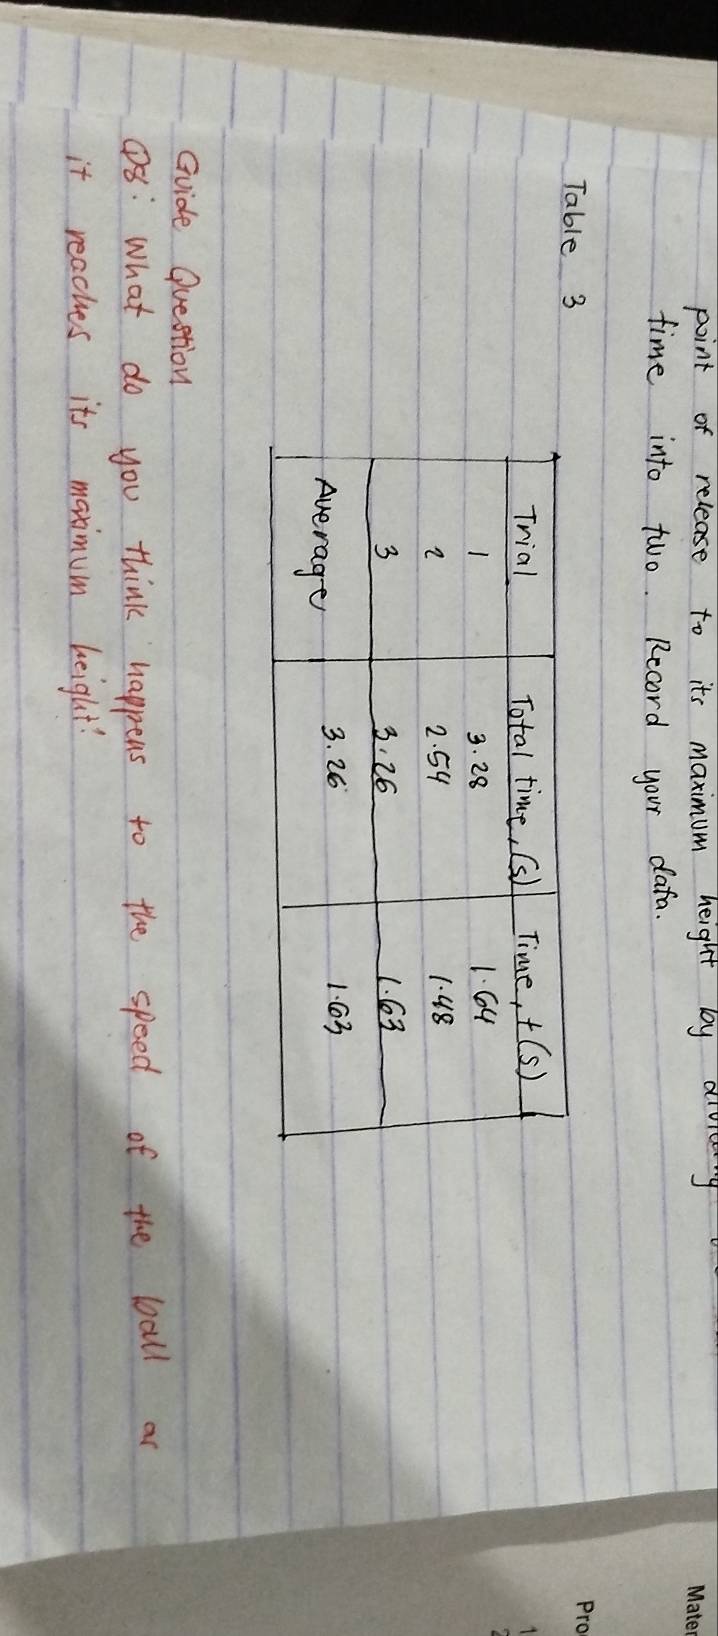 point of release to its maximum height by
time into two. Record your data.
Table 3
Trial Total time, (s) Time, t (s)
1 3.28 1.64
2 2.54 1.48
3 3.26 1.63
Average 3.26 1.63
Guide Question
Q8: What do you think happens to the speed of the ball as
it reaches its maximum height?
Mater
Pro
1
2